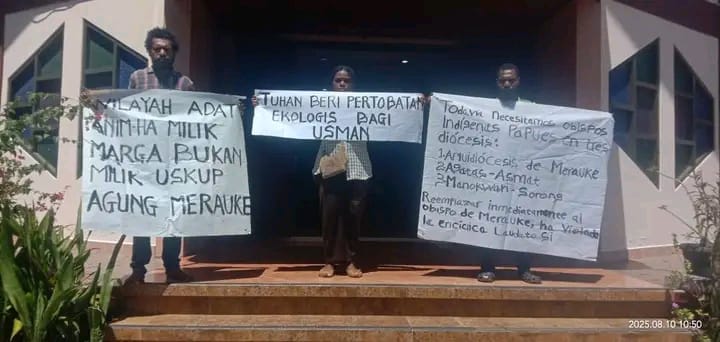 WILAYAH ADAT
ANIM-HA MILIK
MARGA BUKAN
MILIK USKUP
AGUNG MERAUKE
TUHAN BERI PERTOBATAN
EKOLOGIS BAGI
USMAN
Todavia Necesitamos obispos
Indigenas Papues en tres
diócesis:
de Merauke
2. Agatas-Asmat
3. Manokwari-Sorong
Reemplazar inmediatamente al
obispo de Merauke, ha violado
la encíclica Laudato Si
2025.08.10 10:50